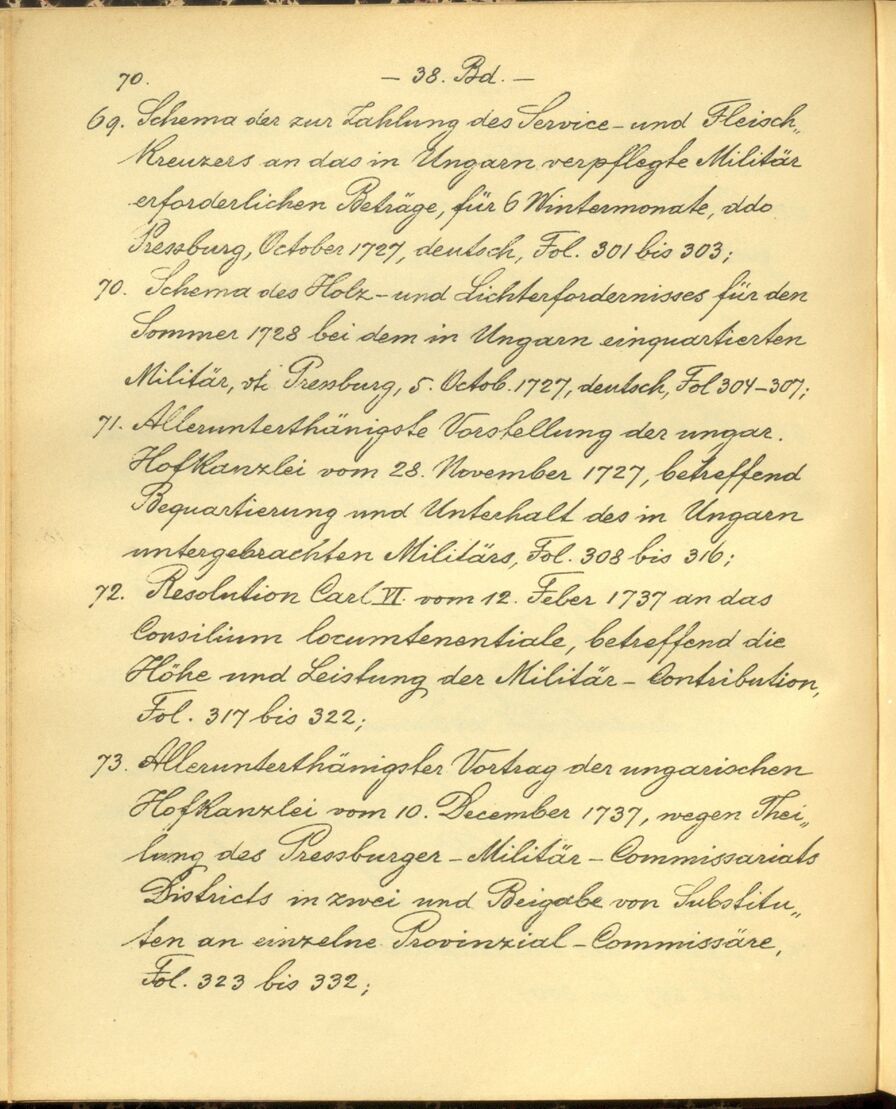 70. — 38. Bd. —
69. Schema der zur Zahlung des Service- und Fleisch„
Kreuzers an das in Ungarn verpflegte Militär
erforderlichen Beträge, für 6 Wintermonate, ddo
Pressburg, October 1727, deutsch, Fol. 301 bis 303;
70. Schema des Holz- und Lichterfordernisses für den
Sommer 1728 bei dem in Ungarn einquartierten
Militär, Pressburg, 5. Octob. 1727, deutsch, Fol 304-307;
71. Allerunterthänigste Vorstellung der ungar.
Hofkanzlei vom 28. November 1727, betreffend
Bequartierung und Unterhalt des in Ungarn
untergebrachten Militärs, Fol. 308 bis 316;
72. Resolution Carl VI. vom 12. Feber 1737 an das
Consilium locumtenentiale, betreffend die
Höhe und Leistung der Militär-Contribution,
Fol. 317 bis 322;
73. Allerunterthänigster Vortrag der ungarischen
Hofkanzlei vom 10. December 1737, wegen Thei„
lung des Pressburger-Militär-Commissariats
Districts in zwei und Beigabe von Substitu„
ten an einzelne Provinzial-Commissäre,
Fol. 323 bis 332;